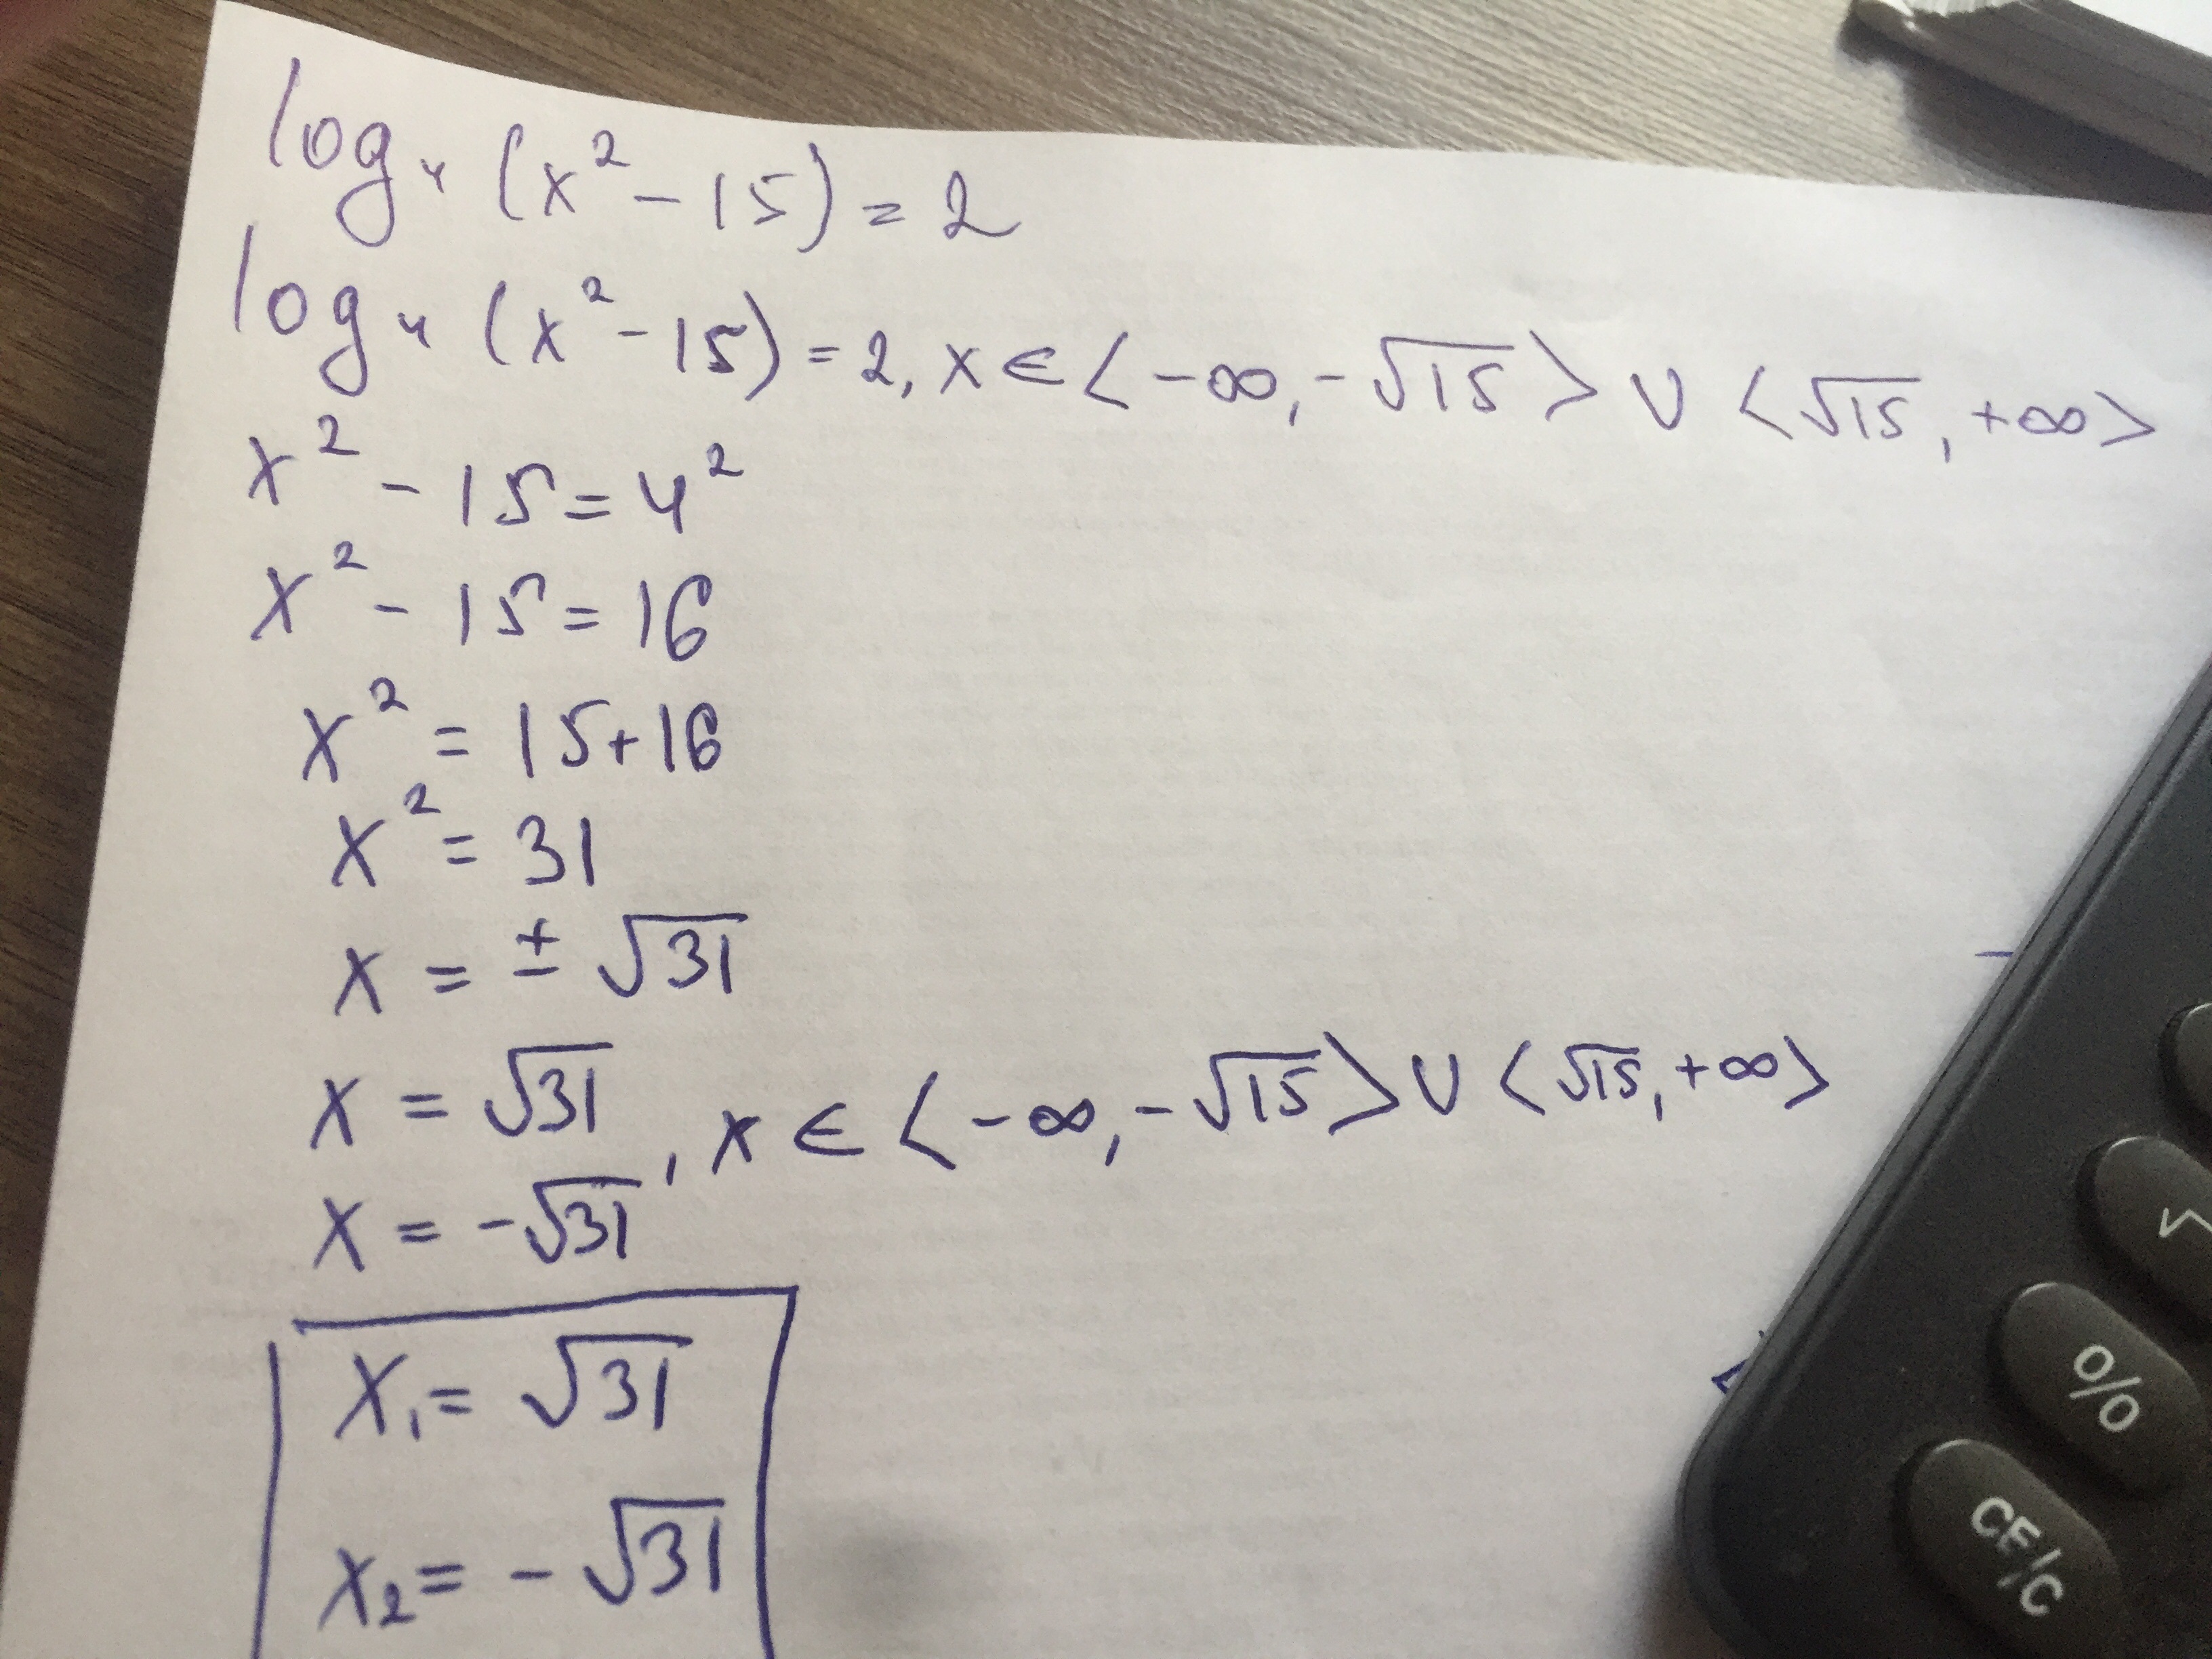 log₄ (x² - 15) = 2
log₄ (x² - 15) = 2, x ∈ ⟨-∞, -√15⟩ ∪ ⟨√15, +∞⟩
x² - 15 = 4²
x² - 15 = 16
x² = 15 + 16
x² = 31
x = ± √31
x = √31
, x ∈ ⟨-∞, -√15⟩ ∪ ⟨√15, +∞⟩
x = -√31
x₁ = √31
x₂ = - √31
√
%
CE/C